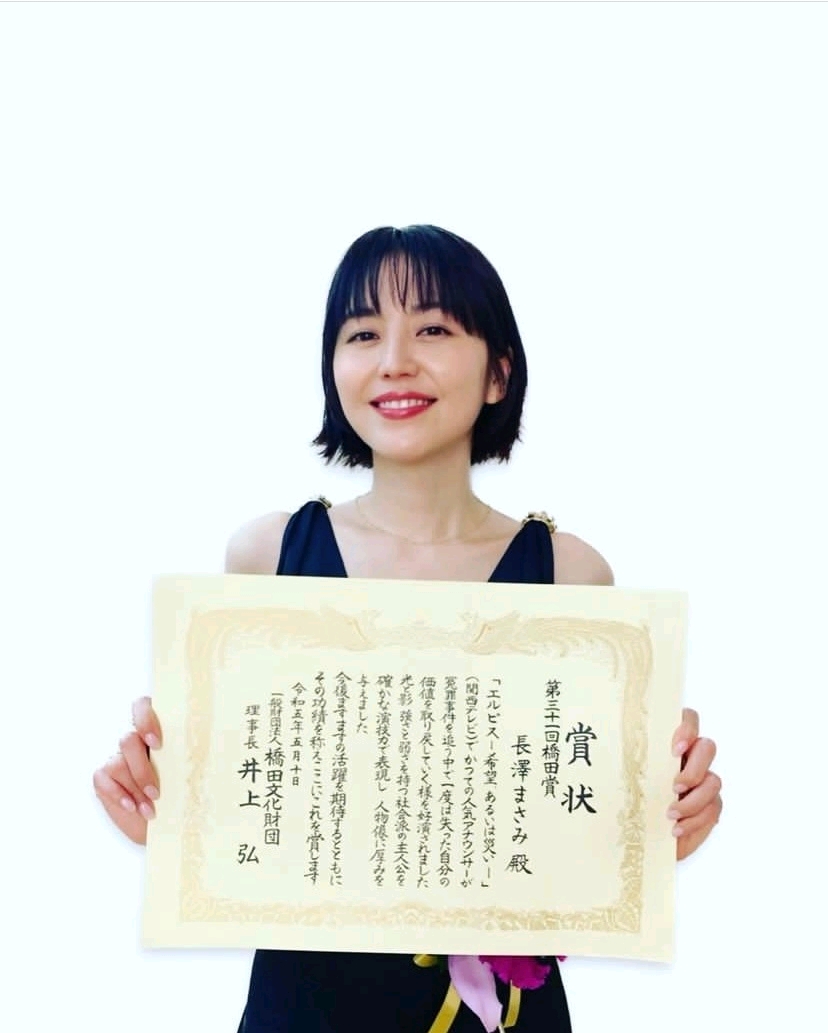 賞状
第三十一回橋田賞
長澤まさみ 殿
「エルピスー希望、あるいは災いー」
(関西テレビ)でかつての人気アナウンサーが
冤罪事件を追う中で一度は失った自分の
価値を取り戻していく様を好演されました
光と影 強さと弱さを持つ社会派の主人公を
確かな演技力で表現し 人物像に厚みを
与えました
今後ますますの活躍を期待するとともに
その功績を称えここにこれを賞します
令和五年五月十日
一般財団法人 橋田文化財団
理事長 井上 弘